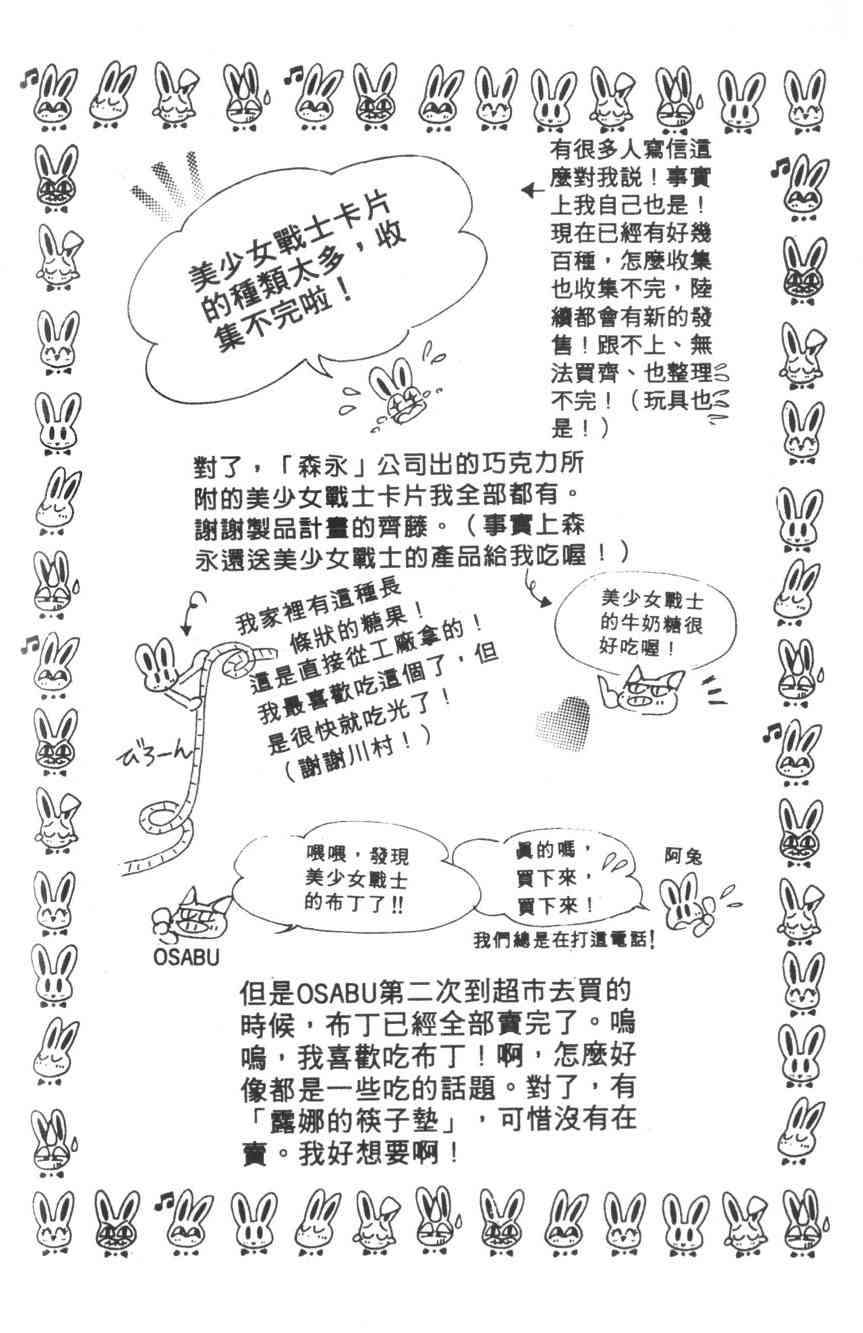 美少女戰士卡片
的種類太多，收
集不完啦！
有很多人寫信這
麼對我說！事實
上我自己也是！
現在已經有好幾
百種，怎麼收集
也收集不完，陸
續都會有新的發
售！跟不上、無
法買齊、也整理
不完！（玩具也
是！）
對了，「森永」公司出的巧克力所
附的美少女戰士卡片我全部都有。
謝謝製品計畫的齊藤。（事實上森
永還送美少女戰士的產品給我吃喔！）
我家裡有這種長
條狀的糖果！
這是直接從工廠拿的！
我最喜歡吃這個了，但
是很快就吃光了！
（謝謝川村！）
びろーん
美少女戰士
的牛奶糖很
好吃喔！
喂喂，發現
美少女戰士
的布丁了!!
OSABU
真的嗎，
買下來，
買下來！
阿兔
我們總是在打這電話！
但是OSABU第二次到超市去買的
時候，布丁已經全部賣完了。嗚
嗚，我喜歡吃布丁！啊，怎麼好
像都是一些吃的話題。對了，有
「露娜的筷子墊」，可惜沒有在
賣。我好想要啊！